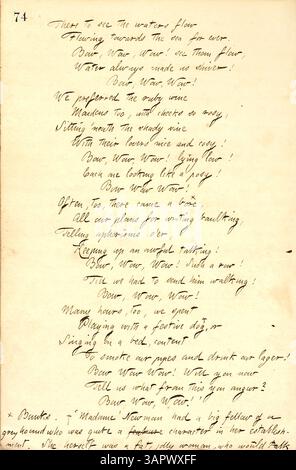 74
There to see the waters flow
Flowing towards the sea for ever.
Bow, Wow, Wow! see them flow,
Water always made us shiver!
Bow, Wow, Wow!
We preferred the ruby wine
Maidens too, with cheeks so rosy,
Sitting 'neath the shady vine
With their lovers nice and cosy;
Bow, Wow, Wow! lying low!
Each one looking like a posy!
Bow Wow Wow!
Often, too, there came a bore
All our plans for outing
Telling o'er
Keeping up an awful talking!
Bow, Wow, Wow! Such a row!
Till we had to send him walking!
Bow, Wow, Wow!
Many hours, too, we spent
Playing with a festive dog, or
Singing by a red, content
To smoke our pipes and drink our lager!
Bow Wow Wow! Will you now
Tell us what from this you augur?
Bow, Wow, Wow!
x Bunks. Madame Newman and a big fellow of a
greyhound who was quite a character in her establish-
ment. She herself was a fat, jolly woman, who would talk
alamy
Image ID: 3APWXFF
www.alamy.com